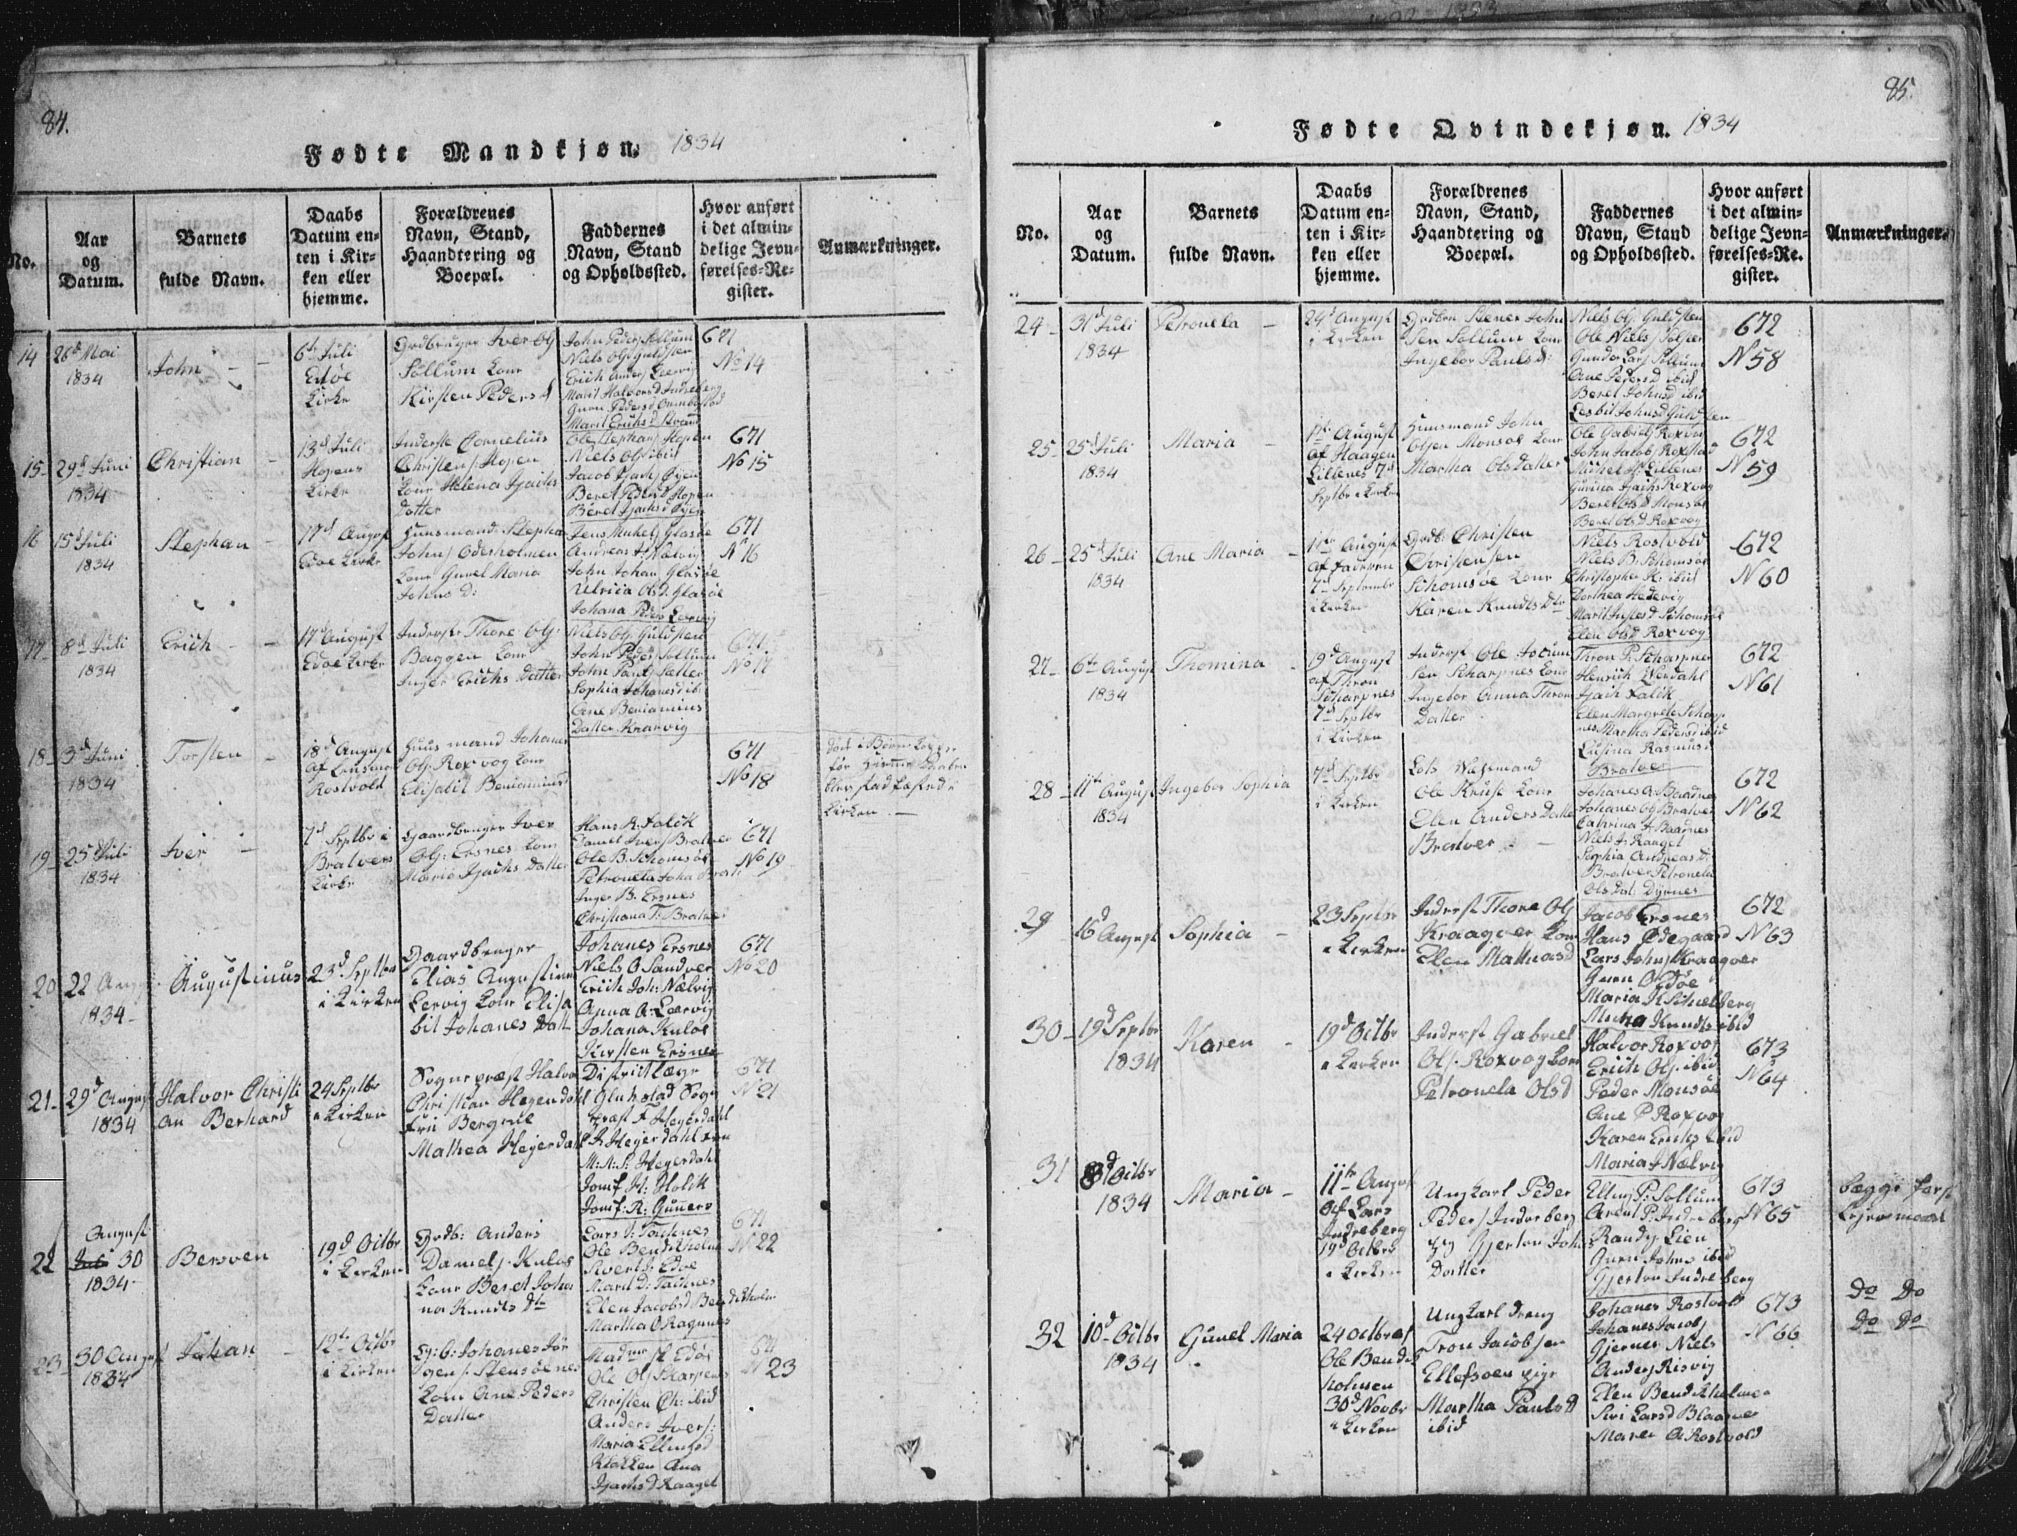 84.
Fødte Mandkjøn. 1834
No.
Aar og Datum.
Barnets fulde Navn.
Daabs Datum enten i Kirken eller hjemme.
Forældrenes Navn, Stand, Haandtering og Boepæl.
Faddernes Navn, Stand og Opholdssted.
Hvor anført i det almindelige Jevnførelses-Register.
Anmærkninger.
14
26d Mai
1834
John
6te Juli
Edøe
Kirke
Sollum Kone
Kirsten Peders d
John Peders Sollum
Niels Ols Guldsten
671
No 14
15
29d Juni
1834
Christian
13d Juli
Hopens
Kirke
Inderste Cornelius
Christens Hopen
Kone Helena Isachs
Datter
Ole Stephans Hopen
Niels Ols ibid
Jacob Isachs Øyen
Beret Peders d Hopen
Beret Isachs d Øyen
671
No 15
16
15d Juli
1834
Stephan
17d August
Edøe Kirke
Huusmand Stephan
Johns Edesholmen
Kone Gunel Maria
Johns D:
Jens Mikels Glasøe
Andreas J. Nælvig
John Johans Glasøe
Ulricia Ols d Glasøe
Johana Peders Leervig
671
N 16
17
8d Juli
1834
Erich
17d August
Edøe Kirke
Inderste Thore Ols
Baggen Kone
Inger Erichs Datter
Niels Ols Guldsten
John Peders Sollum
John Pauls Sætter
Sophia Johanes d ib:
Ane Beniamins
Datter Kraavig
671
No 17
18
3d Juni
1834
Torsten
18d August
af Lensmand
Rostvold
Huusmand Johanes
Ols Roxvog Kone
Elisabit Beniamins
671
No 18
Kirken
19
25d Juli
1834
Iver
7d Septbr i
Bratvers
Kirke
Gaardbruger Iver
Ols: Ersnes Kone
Marie Isachs Datter
Hans R. Falck
Daniel Ivers Bratver
Ole B. Schomsøe
Petronela Joha Brat.
Inger B. Ersnes
Christiana T. Bratver
671
No 19
20
22 Aug
1834
Augustinus
23d Septbr
i Kirken
Gaardbruger
Elias Augustin
Lervig Kone Elisa
bit Johanes Datt
Johanes Ersnes
Niels O Sandver
Erich Joh: Nælvig
Anna A: Leervig
Johana Kuløe
Kirsten Ersnes
671
No 20
21
29d August
1834
Halvor Christi
an Berhard
24 Septbr
i Kirken
Sognepræst Halvor
Christian Heyerdahl
Fru Bergine
Mathea Heyerdahl
Districtlæge
Gluhstad Sogn
præst F Heyerdahl
F. Heyerdahl Fru
M: A: S: Heyerdahl
Jomf. H: Holck
Jomf: R: Guners
671
N 21
22
August
30
1834
Bersven
19d Octbr
i Kirken
Grdb: Anders
Daniels Kuløe
Kone Beret Joha
na Knuds Dtr
Lars J. Tochnes
Ole Bendikholm
Sivert J. Edøe
Marit D: Tochnes
Elen Jacobsd Bendikholm
Martha O Ragnnes
671
N 22
23
30 August
1834
Johan
12te Octbr
i Kirken
G: b: Johanes Jør
gens Stensøenes
Kone Ane Peders
Datter
Ole Ols Skarpnes
Christen Ch: ibid
Anders Ivers:
Maria Ellings d
Klokken Ana
Isachs d Kaagel
N 23
85.
Fødte Qvindekjøn. 1834
No.
Aar og Datum.
Barnets fulde Navn.
Daabs Datum enten i Kirken eller hjemme.
Forældrenes Navn, Stand, Haandtering og Boepæl.
Faddernes Navn, Stand og Opholdssted.
Hvor anført i det almindelige Jevnførelses-Register.
Anmærkninger.
24
31d Juli
1834
Petronela
24d August
i Kirken
Grdbr Stener John
Sen Sollum Kone
Ingebor Pauls d:
Niels Ols Guldsten
Gunder Lars Sollum
Ane Peders d ibid
Beret Johns d ibid
Lesbit Johns d Guldsten
672
N 58
25
25d Juli
1834
Maria
17de August
af Haagen
Lillenes 7d
Septbr i Kirken
Huusmand John
Olsen Monsøe Kone
Martha Ols Datter
Ole Gabriels Roxvog
John Jacobs Roxstad
Mikel H: Lillenes
Gurina Isachs Roxvog
Beret Ols d Monsøe
Beret Ols d Roxvog
672
N 59
26
25d Juli
1834
Ane Maria
af Faderen
7d September
i Kirken
Grdb: Christen
Christensen
Schomsøe Kone
Karen Knudts Dtr
Niels Rostvold
Niels B. Schomsøe
Christopher K: ibid
Dorthea Hedevig
Elen Ols d Roxvog
672
N 60
27
6te August
1834
Thomina
19d August
af Thron
Scharpnes
7d Septbr
i Kirken
Inderst Ole Jocum
Sen Scharpnes Kone
Ingebor Anna Thron
Datter
Thron P. Scharpnes
Henrich Werdahl
Isach Falck
Elen Margrete Scharp
nes Martha Peders d ibid
Lusina Rasmus d
Bratver
672
N 61
28
11te August
1834
Ingebor Sophia
7d Septbr
i Kirken
Lots Væsmand
Ole Kruse Kone
Elen Anders Datter
Bratver
Johanes A Baadnes
Johanes Ols Bratver
Cathrina J. Baadnes
Niels J. Kaagel
Sophia Andreas D:
Bratver Petronela
Ols Dat: Dyrnes
672
N 62
29
16d August
Sophia
23 Septbr
i Kirken
Inderst Thore Ols
Kraagver Kone
Elen Mathias d
Jacob Ersnes
Hans Ødegaard
Lars Johns Kraagver
Guru O Edøe
Maria K Schielberg
Knudts ibid
672
N 63
30
19d Septbr
1834
Karen
19d Octbr
i Kirken
Inderst Gabriel
Ols: Roxvog Kone
Petronela Ols d
Halvor Roxvog
Erich Ols: ibid
Peder Monsøe
Ane P Roxvog
Karen Erichs ibid
Maria J Nælvig
673
N 64
31
8d Octbr
1834
Maria
11te August
af Lars
Indreberg
19d Octbr
i Kirken
Ungkarl Peder
Peders Indreberg
og Gjertru Johns
Datter
Elling P: Sollum
Arent P: Indreberg
Randy Lien
Guru Johns ibid
Gjertru Indreberg
673
N 65
begge første
Leiermaal
32
10d Octbr
1834
Gunel Maria
24 Octbr af
Ole Bendik
holmen
30d Novbr
i Kirken
Ungkarl dreng
Tron Jacobsen
Ellefsøen pige
Martha Pauls d
ibid
Johanes Rostvold
Johanes Jacobs
Gjerner Niels
Anders Risvig
Elen Bendikholmen
Siri Lars d Blaagnes
Maren O Rostvold
673
N 66
Do Do
Do Do